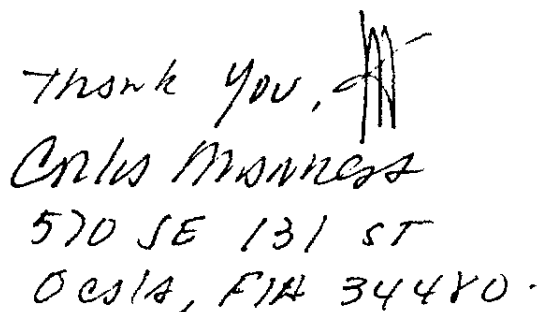 Thank You,
Carlos Manness
570 SE 131 ST
Ocala, FlA 34480.